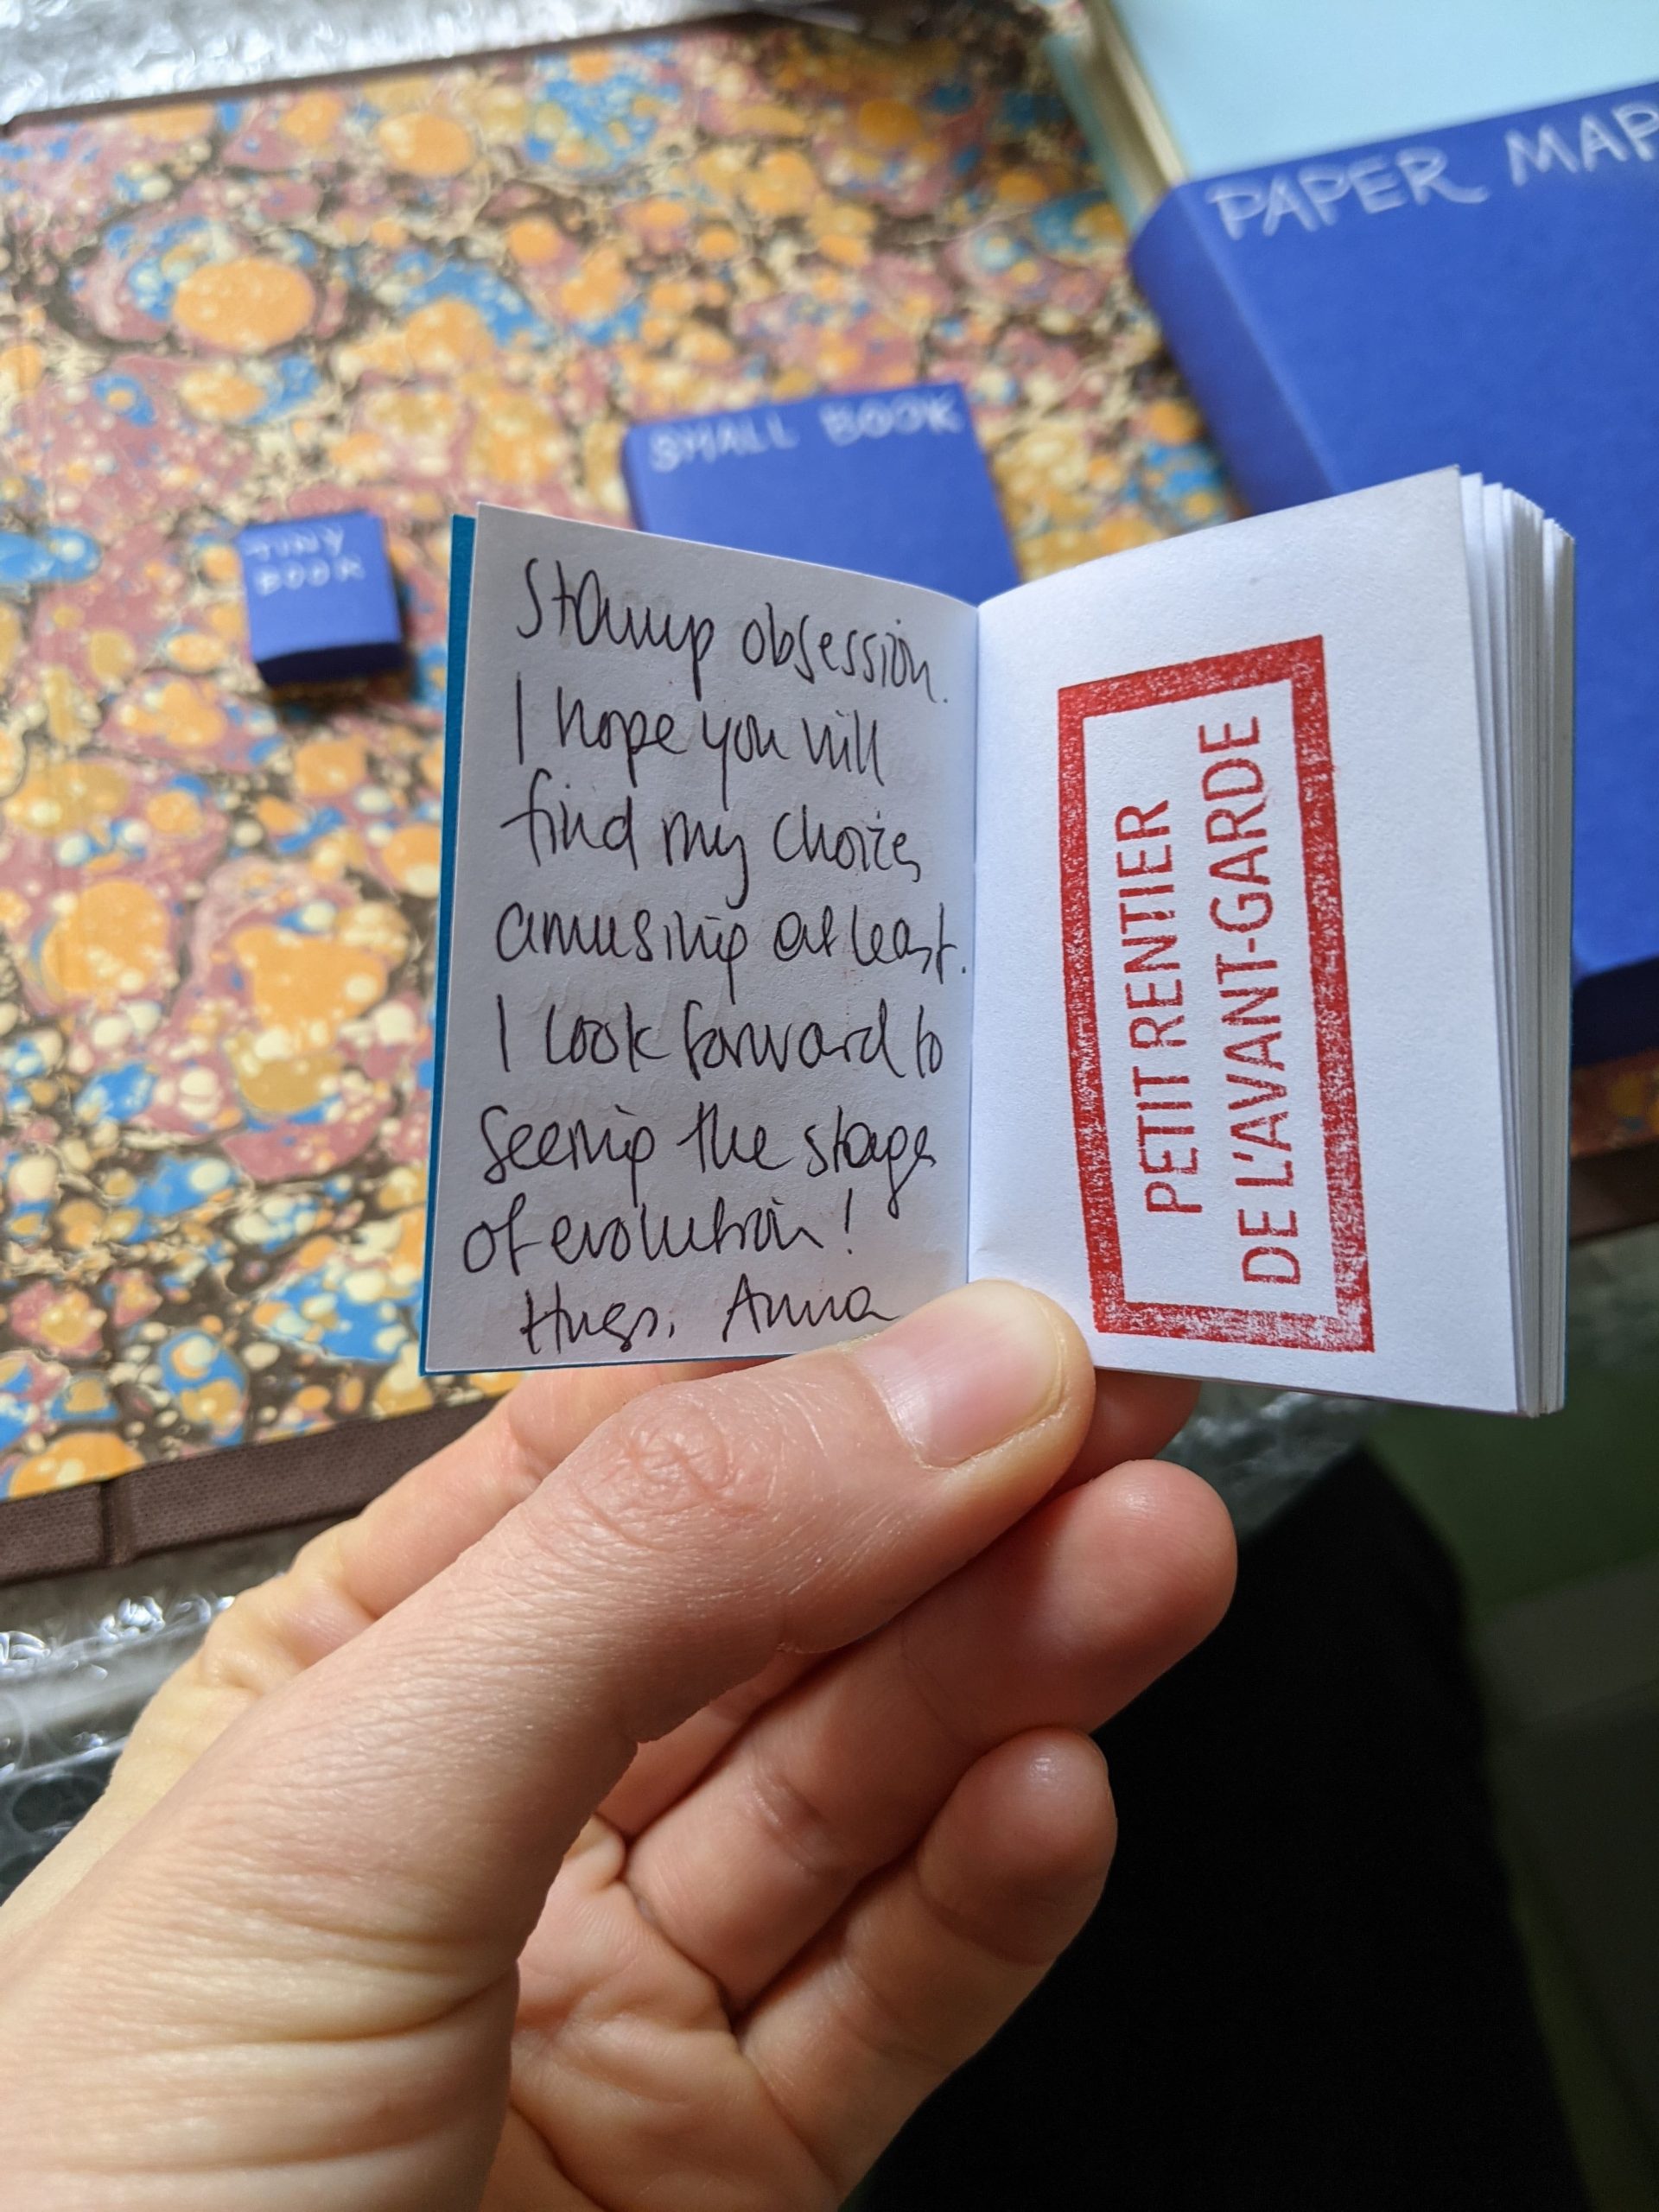 PAPER MAP
SMALL BOOK
TINY
BOOK
Stamp obsession.
I hope you will
find my choice
amusing at least.
I look forward to
seeing the stage
of evolution!
Hugs, Anna
PETIT RENTIER
DE L'AVANT-GARDE